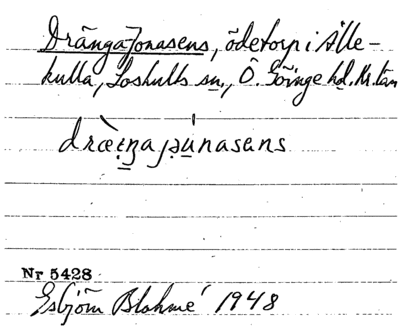 Drängajonasens, ödetorp i Älle-
kulla, Loshults sn., Ö. Göinge hd. Kr. län
Nr 5428
Esbjörn Blohmé 1948